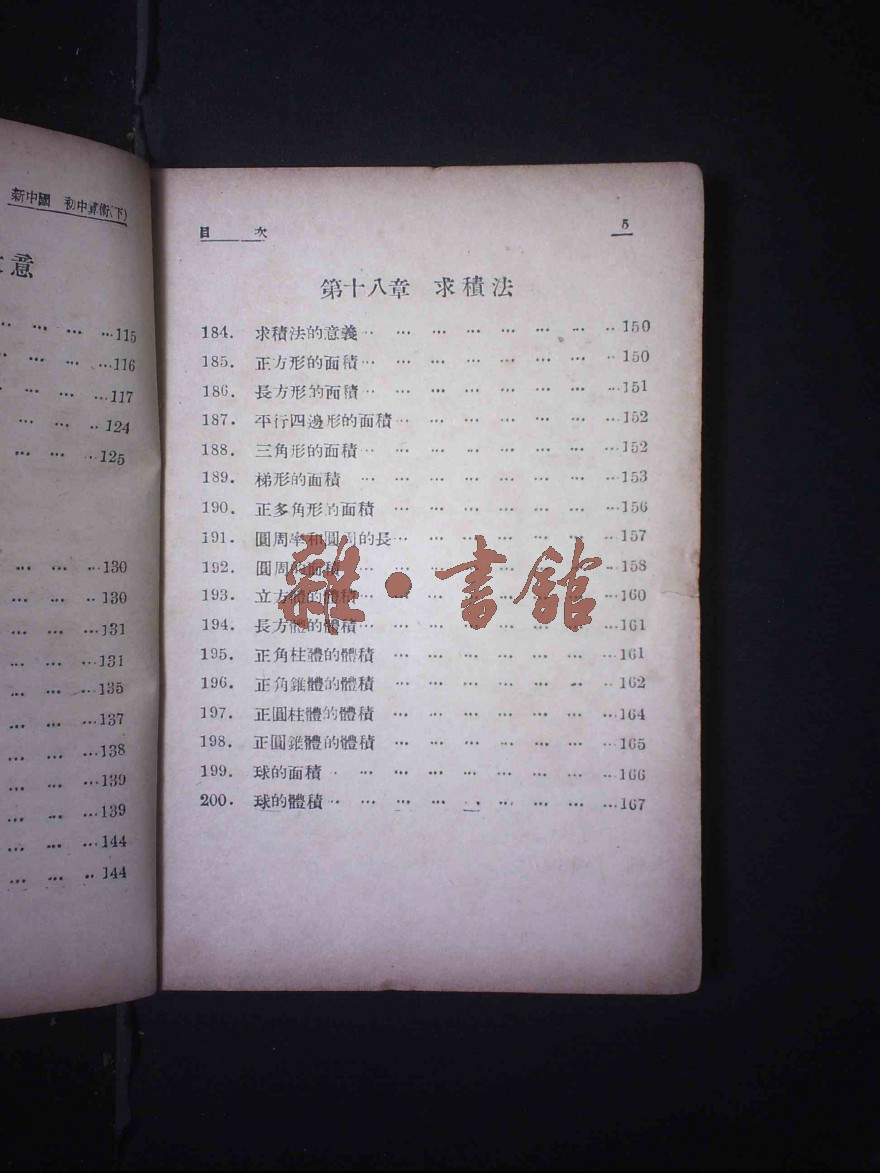 新中國 初中算術(下)
意
···115
···116
···117
··124
··125
···130
··130
···131
···131
···135
···137
···138
···139
···139
···144
··144
目 次 5
第十八章 求積法
184. 求積法的意義·· ··· ··· ··· ··· ··· ··· ··150
185. 正方形的面積··· ··· ··· ··· ··· ··· ··· ··150
186. 長方形的面積·· ··· ··· ··· ··· ··· ··· ···151
187. 平行四邊形的面積·· ··· ··· ··· ··· ··· ···152
188. 三角形的面積 ··· ··· ··· ··· ··· ··· ··· ···152
189. 梯形的面積 ··· ··· ··· ··· ··· ··· ··· ···153
190. 正多角形的面積 ··· ··· ··· ··· ··· ··· ···156
191. 圓周率和圓周的長··· ··· ··· ··· ··· ··· ···157
192. 圓周的面積 ··· ··· ··· ··· ··· ··· ··· ···158
193. 立方體的體積··· ··· ··· ··· ··· ··· ··· ···160
194. 長方體的體積··· ··· ··· ··· ··· ··· ··· ···161
195. 正角柱體的體積 ··· ··· ··· ··· ··· ··· ···161
196. 正角錐體的體積 ··· ··· ··· ··· ··· ··· ···162
197. 正圓柱體的體積 ··· ··· ··· ··· ··· ··· ···164
198. 正圓錐體的體積 ··· ··· ··· ··· ··· ··· ···165
199. 球的面積 · ··· ··· ··· ··· ··· ··· ··· ···166
200. 球的體積·· ·· ··· ··· ··· ··· ··· ··· ···167
雜·書館